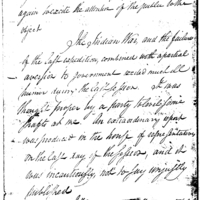 again to excite the attention of the public to the
object
The Indian War, and the failure
of the last expedition, combined with a partial
aversion to government excited much ill
humour during the last session. It was
thought proper by a party to level some
shafts at me. An extraordinary report
was produced in the house of representatives
on the last day of the session, and it
was incautiously, not to say unjustly
published